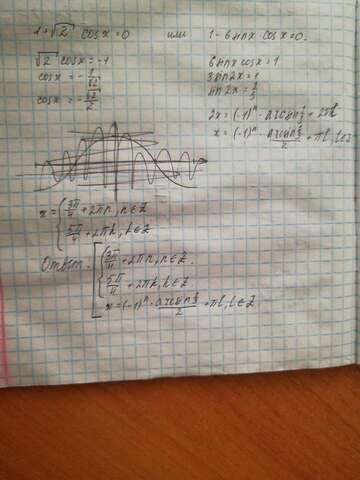 1+√2 cosx=0 или 1-6sinx cosx=0.
√2 cosx=-1 6sinx cosx=1
cosx=-1/√2 3sin2x=1
cosx=-√2/2 sin2x=1/3
2x=(-1)ⁿ·arcsin 1/3 + 2πl
x=(-1)ⁿ·(arcsin 1/3)/2 + πl, l∈Z
x={3π/4+2πn, n∈Z
{5π/4+2πk, k∈Z
Ответ: [{3π/4+2πn, n∈Z.
{5π/4+2πk, k∈Z
x=(-1)ⁿ·(arcsin 1/3)/2+πl, l∈Z